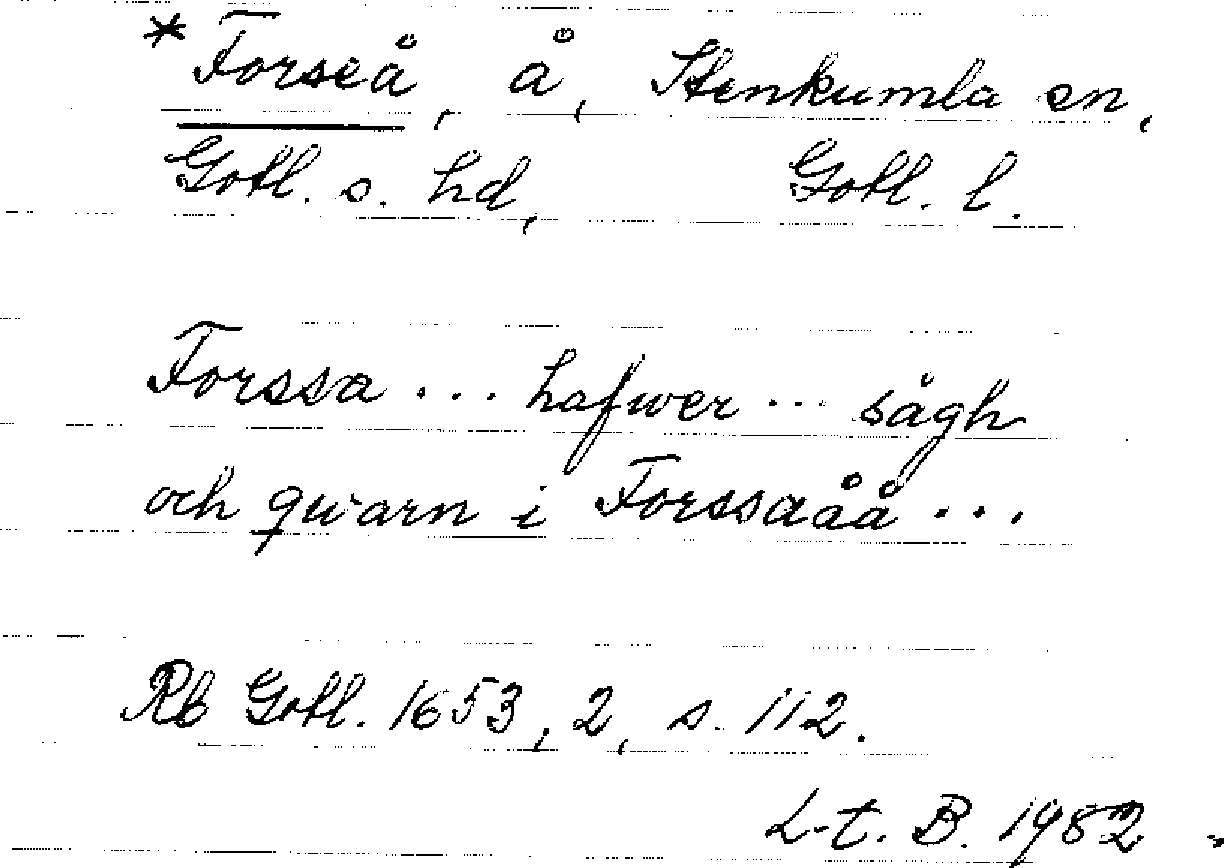 *Forseå, å, Stenkumla sn,
Gotl. s. hd, Gotl. l.
Forssa ... hafwer ... sågh
och qwarn i Forssaåå ...
Rb Gotl. 1653, 2, s. 112.
L-t. B. 1982